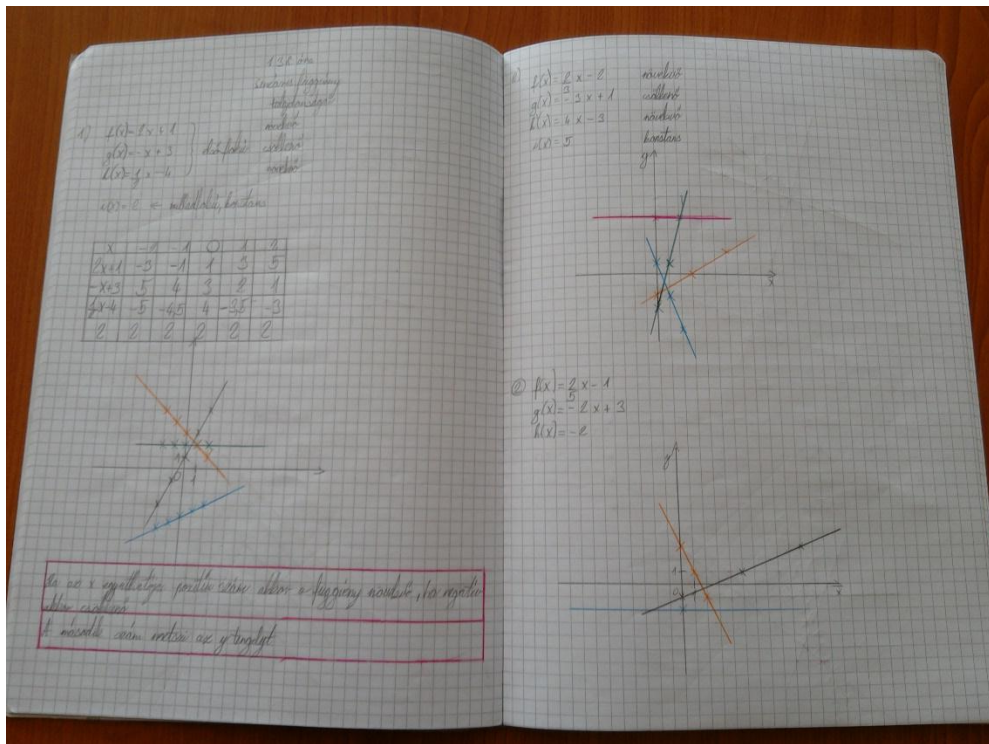 132 óra
Lineáris függvény
tulajdonságai
1) f(x)=2x+1 növekvő
g(x)=-x+3 elsőfokú csökkenő
h(x)=½x-4 növekvő
i(x)=2 ← nulladfokú, konstans
x -2 -1 0 1 2
2x+1 -3 -1 1 3 5
-x+3 5 4 3 2 1
½x-4 -5 -4,5 4 -3,5 -3
2 2 2 2 2 2
1
0 1
Ha az x együtthatója pozitív szám akkor a függvény növekvő, ha negatív
akkor csökkenő
A második szám metszi az y tengelyt
f(x)=2/3 x-2 növekvő
g(x)=-3x+1 csökkenő
h(x)=4x-3 növekvő
i(x)=5 konstans
y
x
② f(x)=2/5 x-1
g(x)=-2x+3
h(x)=-2
y
1
0
x